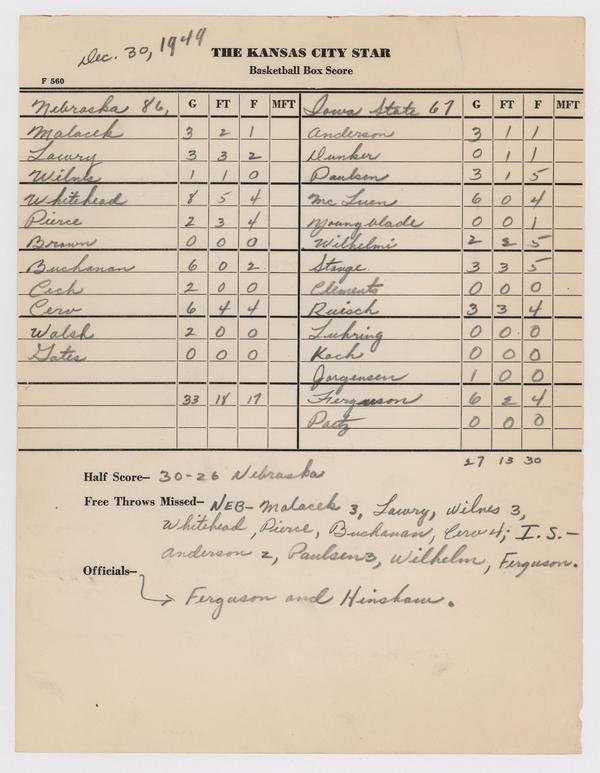 Dec. 30, 1949
THE KANSAS CITY STAR
Basketball Box Score
F 560
Nebraska 86, G FT F MFT Iowa State 67 G FT F MFT
Malacek 3 2 1 Anderson 3 1 1
Lawry 3 3 2 Dunker 0 1 1
Wilnes 1 1 0 Paulsen 3 1 5
Whitehead 8 5 4 McLuen 6 0 4
Pierce 2 3 4 Youngblade 0 0 1
Brown 0 0 0 Wilhelmi 2 2 5
Buchanan 6 0 2 Stange 3 3 5
Cich 2 0 0 Clements 0 0 0
Cerv 6 4 4 Ruisch 3 3 4
Walsh 2 0 0 Luhring 0 0 0
Gates 0 0 0 Koch 0 0 0
Jorgensen 1 0 0
33 18 17 Ferguson 6 2 4
Partz 0 0 0
27 13 30
Half Score— 30-26 Nebraska
Free Throws Missed— NEB- Malacek 3, Lawry, Wilnes 3,
Whitehead, Pierce, Buchanan, Cerv 4; I.S.-
Anderson 2, Paulsen 3, Wilhelm, Ferguson.
Officials—
Ferguson and Hinshaw.